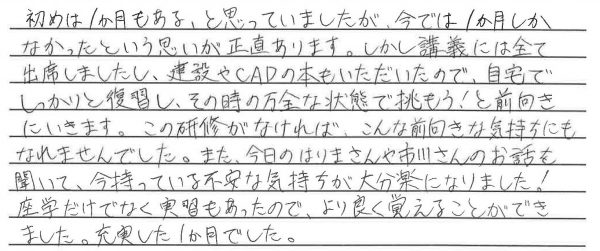 初めは1か月もある、と思っていましたが、今では1か月しか
なかったという思いが正直あります。しかし講義には全て
出席しましたし、建設やCADの本もいただいたので、自宅で
しっかりと復習し、その時の万全な状態で挑もう!と前向き
にいきます。この研修がなければ、こんな前向きな気持ちにも
なれませんでした。また、今日のはりまさんや市川さんのお話を
聞いて、今持っている不安な気持ちが大分楽になりました!
座学だけでなく実習もあったので、より良く覚えることができ
ました。充実した1か月でした。